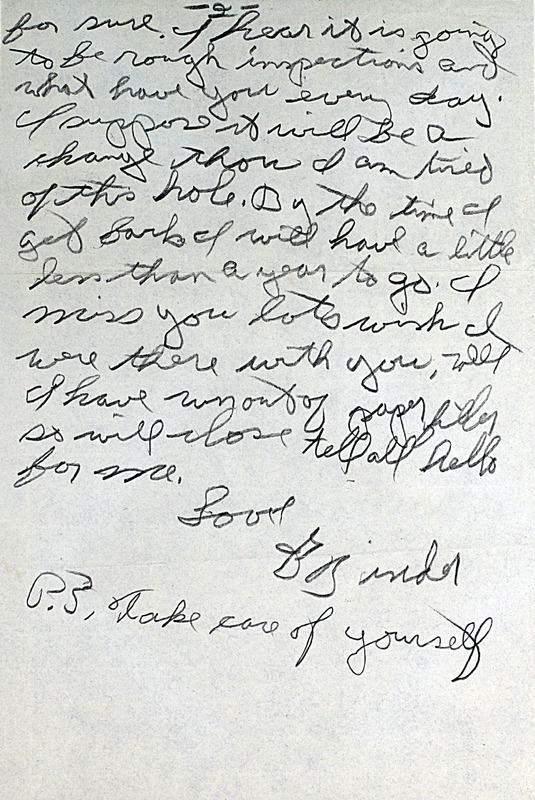 -2-
for sure. I hear it is going
to be rough inspections and
what have you every day.
I suppose it will be a
change thou I am tired
of this hole. By the time I
get back I will have a little
less than a year to go. I
miss you lots wish I
were there with you, well
I have run out of paper
so will close tell all hello
for me.
Love
P.S., Take care of yourself